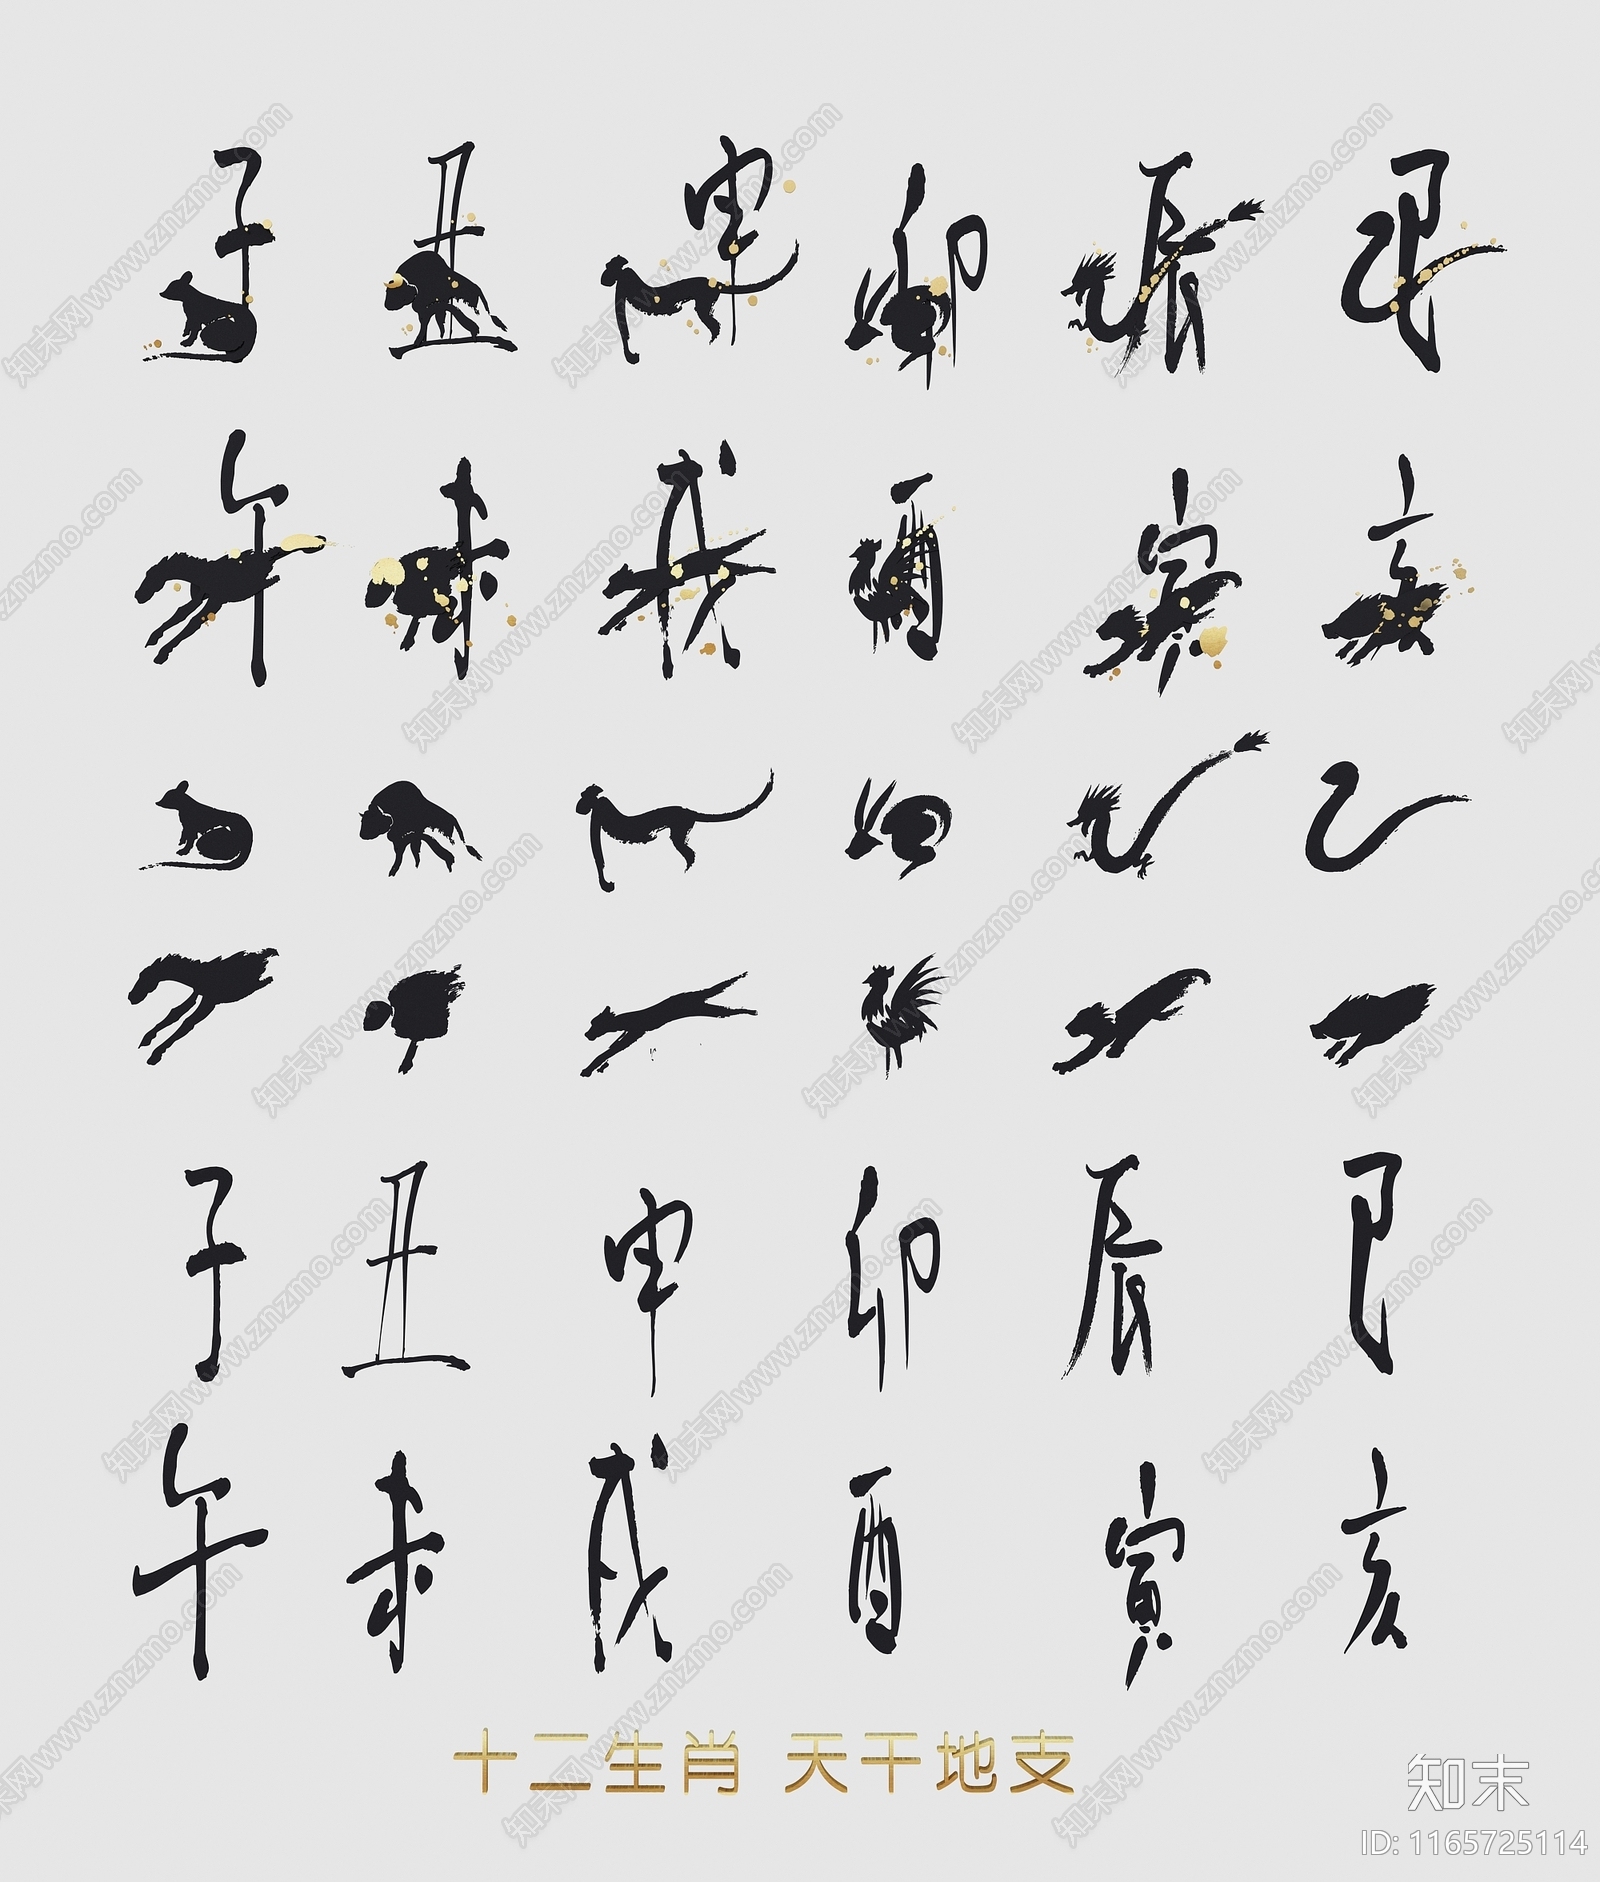 子 丑 申 卯 辰 巳
午 未 戌 酉 寅 亥
子 丑 申 卯 辰 巳
午 未 戌 酉 寅 亥
十二生肖 天干地支
知末
ID: 1165725114
知末网www.znzmo.com